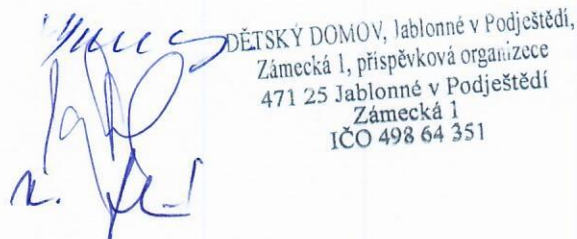 DĚTSKÝ DOMOV, Jablonné v Podještědí,
Zámecká 1, příspěvková organizece
471 25 Jablonné v Podještědí
Zámecká 1
IČO 498 64 351